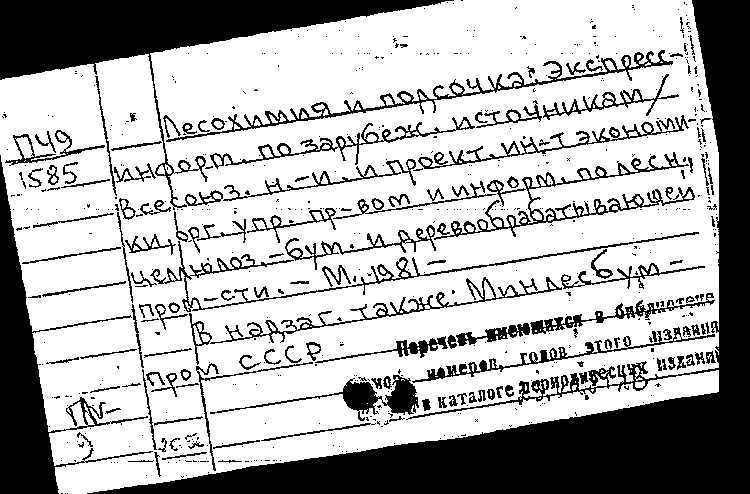 П49
1585
Лесохимия и подсочка: Экспресс-
информ. по зарубеж. источникам /
Всесоюз. н.-и. и проект. ин-т экономи-
ки, орг. упр. пр-вом и информ. по лесн.,
целлюлоз.-бум. и деревообрабатывающей
пром-сти. – М., 1981 –
В надзаг. также: Минлесбум-
пром СССР.
Перечень имеющихся в библиотеке
номеров, годов этого издания
в каталоге периодических изданий